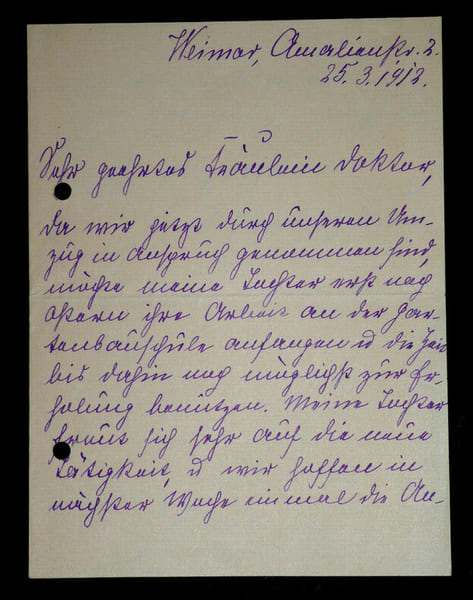 Weimar, Amalienstr. 2.
25. 3. 1912.
Sehr geehrtes Fräulein Doktor,
da wir jetzt durch unseren Um-
zug in Anspruch genommen sind,
möchte meine Tochter erst nach
Ostern ihre Arbeit an der Gar-
tenbauschule anfangen u die Zeit
bis dahin noch möglichst zur Er-
holung benutzen. Meine Tochter
freut sich sehr auf die neue
Tätigkeit, u wir hoffen in
nächster Woche einmal die An-